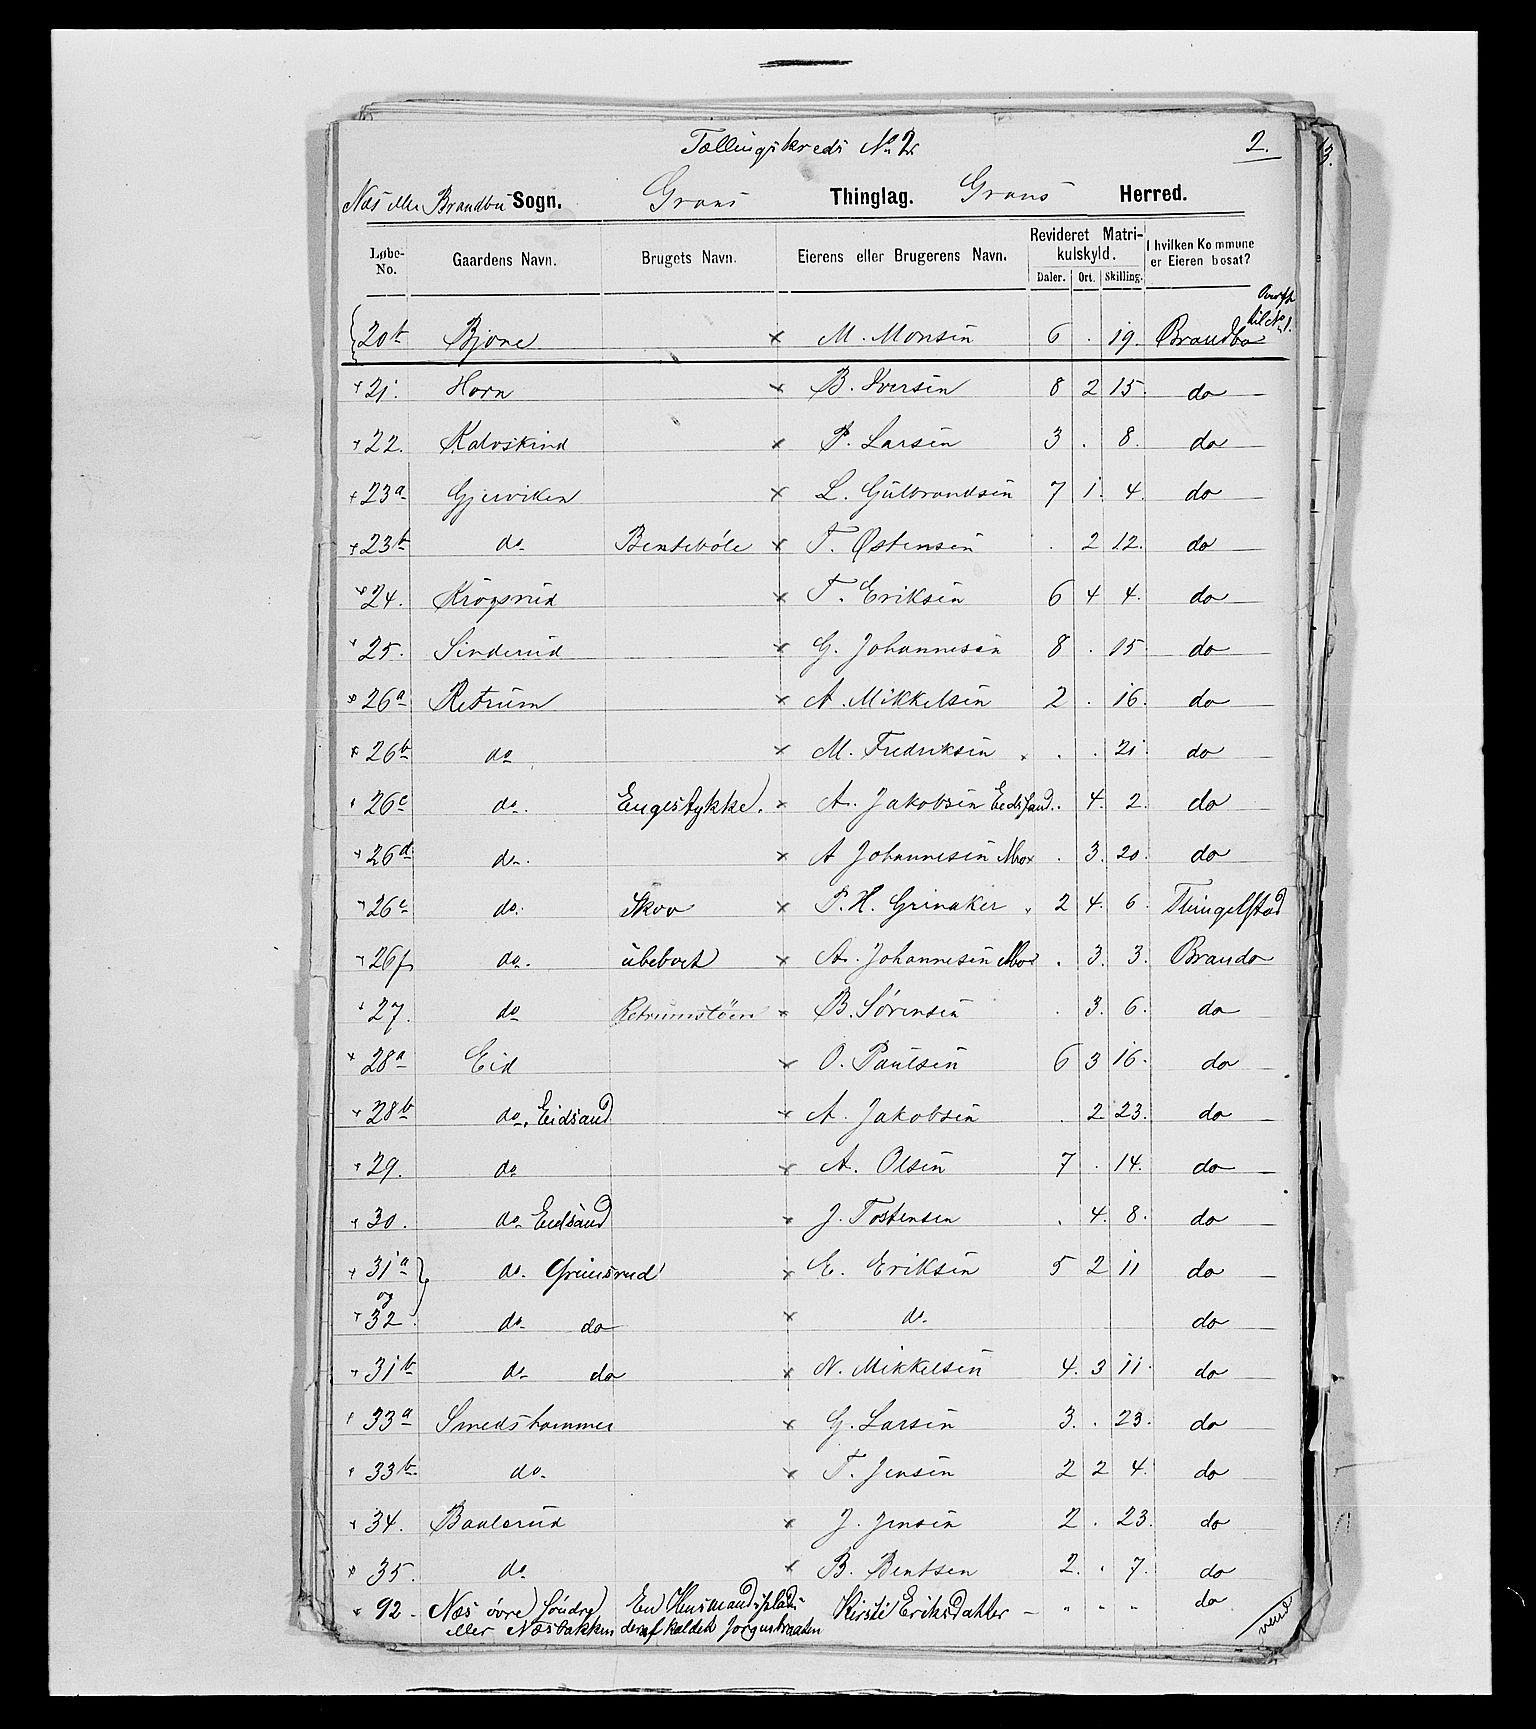 Tællingskreds No 2.
2.
Næs eller Brandbu Sogn. Grans Thinglag. Grans Herred.
Løbe-No. Gaardens Navn. Brugets Navn. Eierens eller Brugerens Navn. Revideret Matrikulskyld. Daler. Ort. Skilling. I hvilken Kommune er Eieren bosat?
til No 1.
20b Bjone × M. Monsen 6 . 19. Brandbo
× 21. Horn × B. Iversen 8 2 15. do
× 22. Kalvskind × P. Larsen 3 . 8. do
× 23a Gjerviken × L. Gulbrandsen 7 1. 4. do
× 23b do Benteböle × T. Østensen . 2 12. do
× 24. Krögsrud × T. Eriksen 6 4 4. do
× 25. Sinderud × G. Johannesen 8 . 15 do
× 26a Retrum × A. Mikkelsen 2 . 16. do
× 26b do × M. Fredriksen . . 21 do
× 26c do. Engestykke. × A. Jakobsen Eidsand. . 4. 2. do
× 26d do. × A Johannesen Moe . 3. 20. do
× 26e do. Skov × P. H. Grinaker 2 4. 6. Thingelstad
× 26f do. ubeboet × A. Johannesen Moe . 3. 3. Brando
× 27. do Retrumstöen × B. Sörensen . 3. 6. do
× 28a Eid × O. Paulsen 6 3 16. do
× 28b do. Eidsand × A. Jakobsen . 2 23. do
× 29. do × A. Olsen 7 . 14. do
× 30. do Eidsand × J. Tostensen . 4. 8. do
× 31a do. Grinisrud × E. Eriksen 5 2 11 do
og
× 32. do do × do. do
× 31b do do × N. Mikkelsen 4. 3 11. do
× 33a Smedshammer × G. Larsen 3. . 23. do
× 33b. do. × T. Jensen 2 2 4. do
× 34. Baalerud × J. Jensen 2 . 23. do
× 35. do × B. Bentsen 2. . 7. do
× 92 Næs övre (söndre) En Husmandsplads Kirsti Eriksdatter - " " " do
eller Næsbakken deraf kaldet
vend